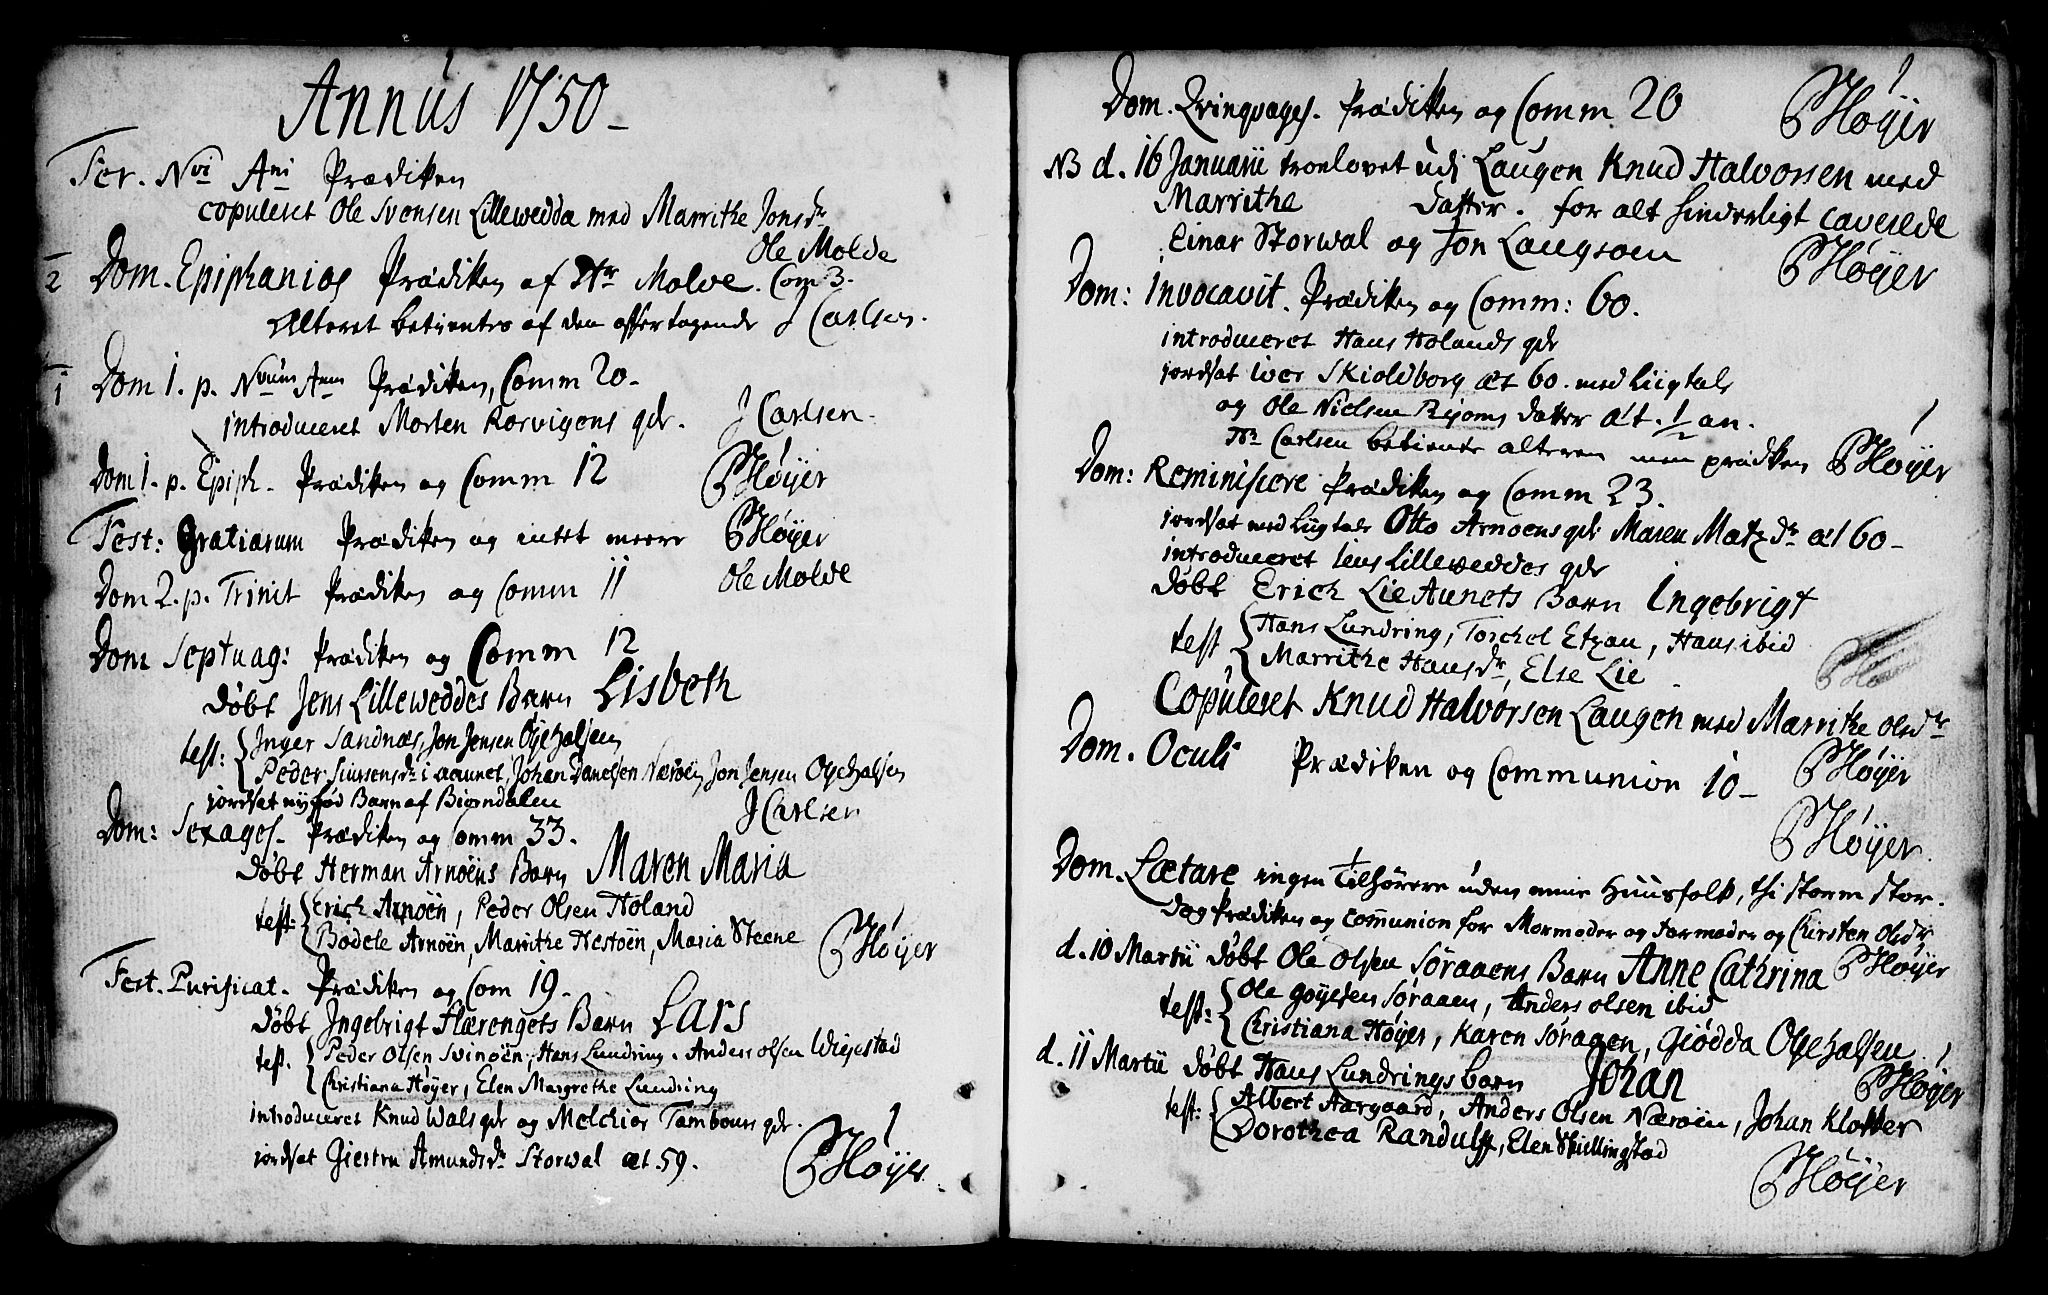 Annus 1750
Fer. Nvi Ani Prædiken
copuleret Ole Svensen Lillewedda med Marrithe Jonsdr
Ole Molde
2 Dom. Epiphanias Prædiken af Hr Molde. Com 3.
Alteret betientes af den offertagende J Carlsen.
1 Dom 1. p. Nvum Anm Prædiken, Comm 20
introduceret Morten Rorvigens qdr. J Carlsen.
Dom 1. p. Epiph. Prædiken og Comm 12 PHøyer
Fest: Gratiarum Prædiken og intet meere PHøyer
Dom 2. p. Trinit Prædiken og Comm 11 Ole Molde
Dom Septuag: Prædiken og Comm 12
Døbt Jens Lilleweddes Barn Lisbeth
test: Inger Sandnæs, Jon Jensen
Peder i aaunet, Johan Danelsen Nærøen Jon Jensen
jordsat nyfød Barn af Biørndalen J Carlsen
Dom: Sexages. Prædiken og Comm 33.
Døbt Herman Arnøens Barn Maren Maria
test: Erich Arnøen, Peder Olsen Høland
Bodele Arnøen, Marrithe Hestøen, Maria Steene PHøyer
Fest. Purificat. Prædiken og Com 19.
Døbt Ingebrigt Flærengets Barn Lars
test. Peder Olsen Svinøen, Hans Lundring. Anders olsen Wigestad
Christiana Høyer, Elen Margrethe Lundring
introduceret Knud Wals qdr og Melchior Tambours qdr.
jordsat Giertru Amundsdr Storwal æt. 59. PHøyer
Dom. Qvinqvages. Prædiken og Comm 20 PHøyer
NB d. 16 Januarii troelovet udi Laugen Knud Halvorsen med
Marrithe Datter. for alt hinderligt caverede
Einar Storwal og Jon Laugsoen PHøyer
Dom: Invocavit. Prædiken og Comm: 60.
introduceret Hans Holands qdr
jordsat iver Skioldborg æt 60. med Liigtale
og Ole Nielsen Ryoms Datter æt. 1/2 an.
Hr Carlsen betiente alteren men prædiken PHøyer
Dom: Reminiscere Prædiken og Comm 23.
jordsat med Liigtale Otto Arnøens qdr Maren Matzdr æt 60
introduceret Jens Lilleweddes qdr
Døbt Erich Lie Aunets Barn Ingebrigt
test Hans Lundring, Torchel Etzau, Hans ibid
Marrithe Hansdr, Else Lie
Copuleret Knud Halvorsen Laugen med Marrithe olsdr
Dom. Oculi Prædiken og Communion 10 PHøyer
PHøyer.
Dom. Lætare ingen Tilhørere uden mine Huusfolk, thi storm stor.
Dog Prædiken og communion for Mormoder og Farmoder og Chirsten Olsdr
PHøyer
d. 10 Martii Døbt Ole Olsen Søraaens Barn Anne Cathrina
test: Ole Søraaen, Anders olsen ibid
Christiana Høyer, Karen Søragen, Giødda
d. 11 Martii Døbt Hans Lundrings barn Johan PHøyer
test: Albert Aargaard, Anders Olsen Nærøen, Johan Klokker
Dorothea Randulff, Elen Skillingstad
PHøyer